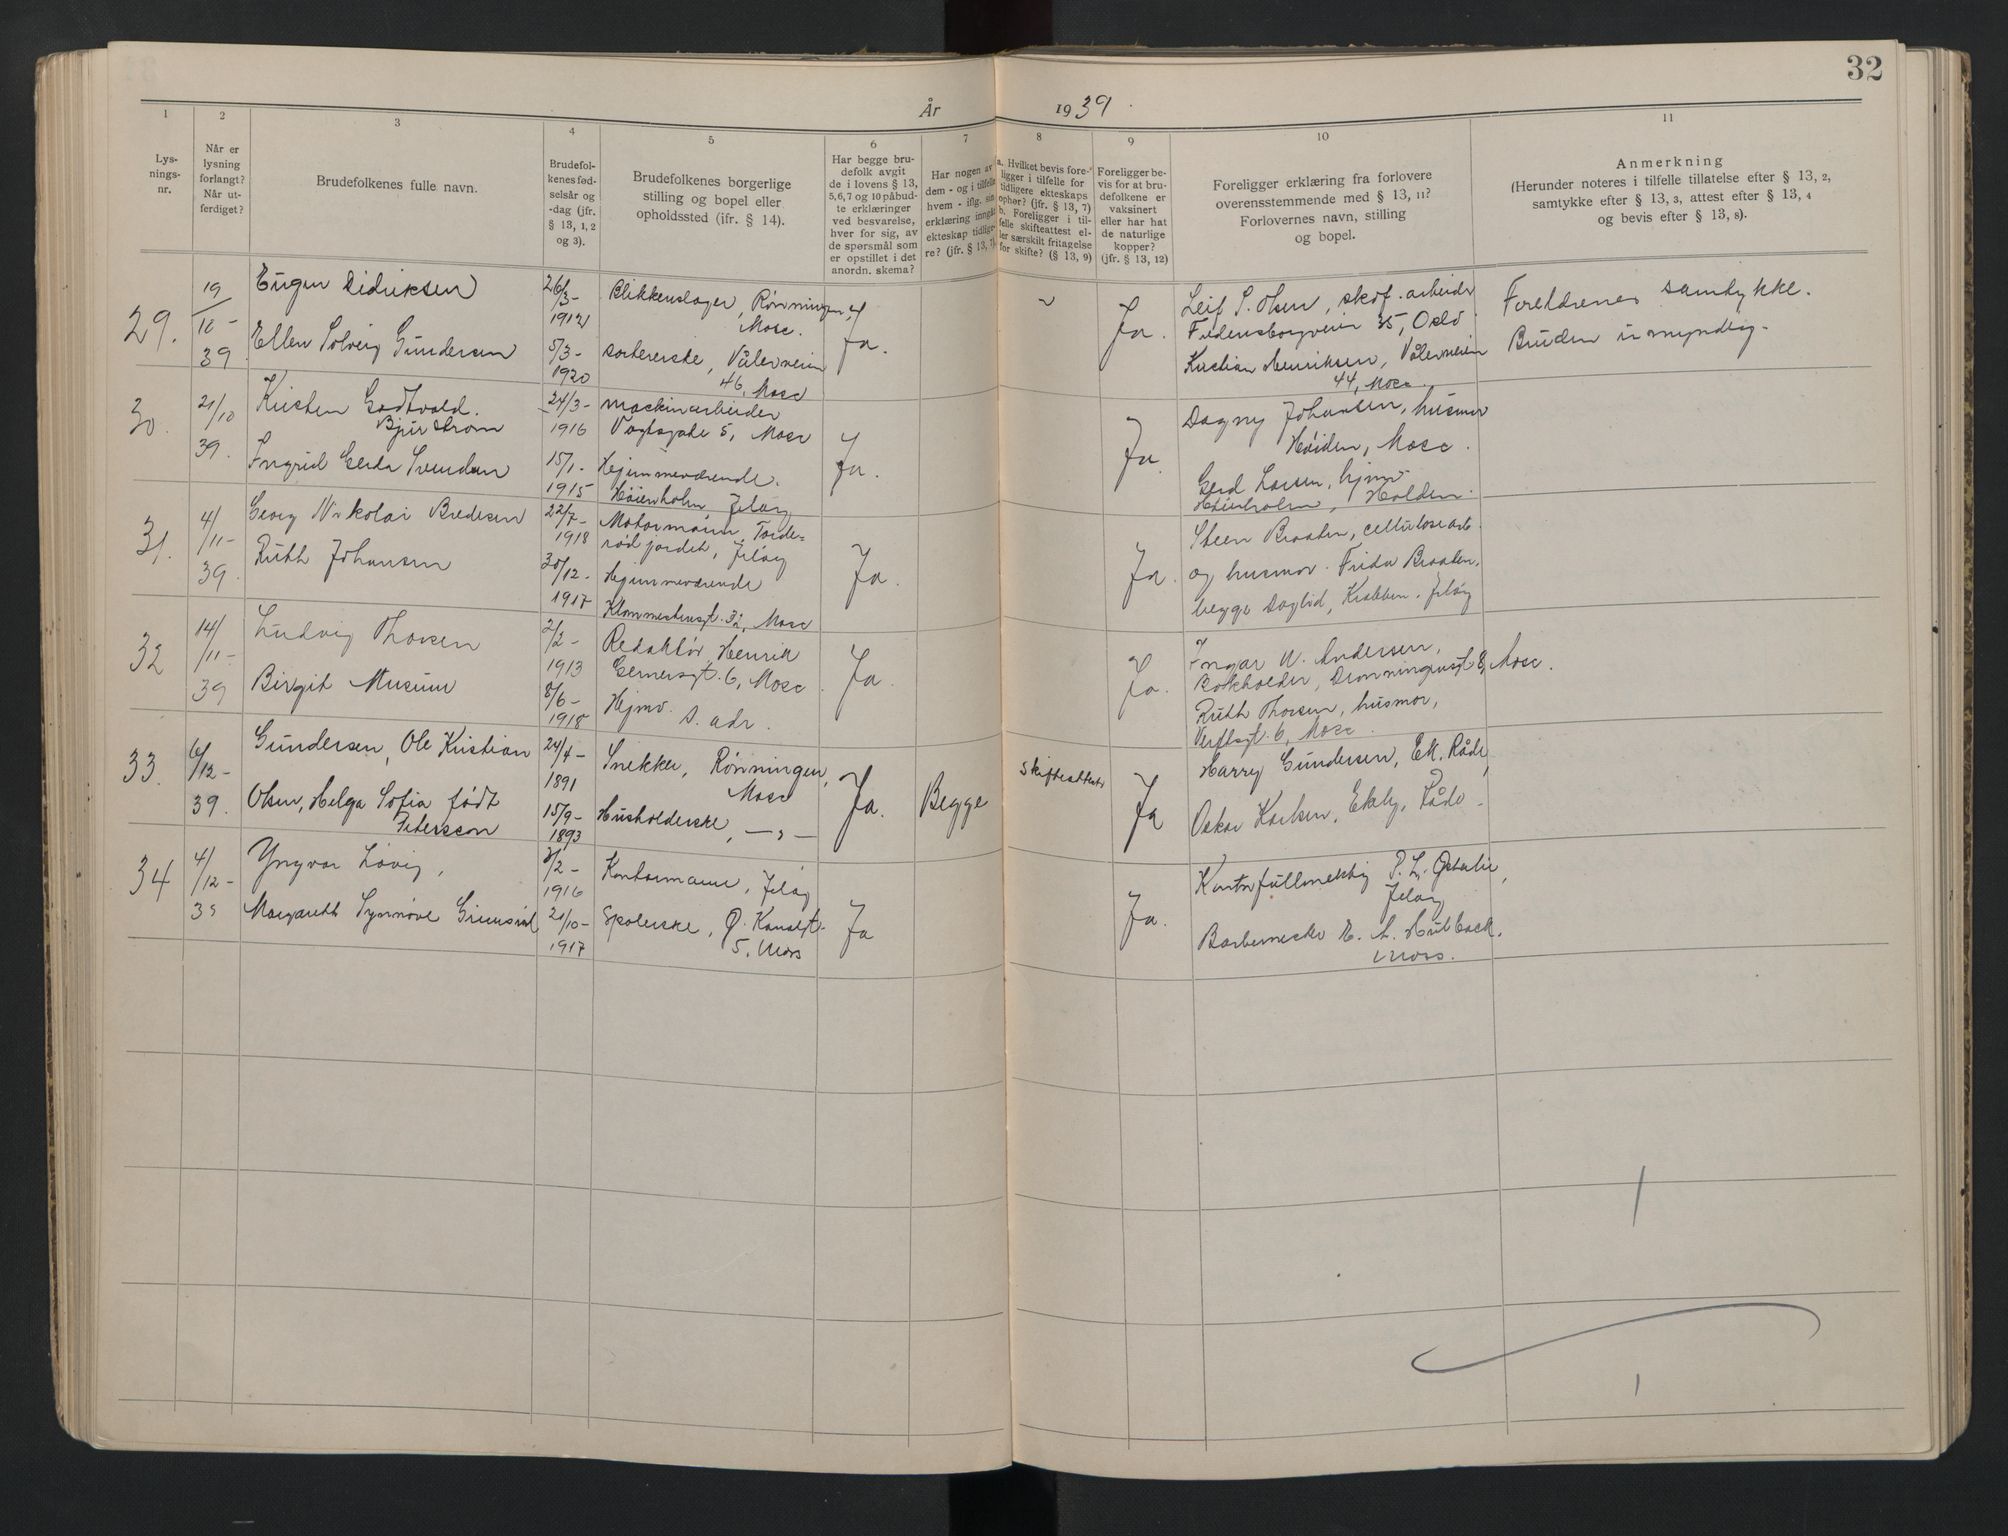 32
År 1939.
1
2
3
4
5
6
7
8
9
10
11
Lys-
nings-
nr.
Når er
lysning
forlangt?
Når ut-
ferdiget?
Brudefolkenes fulle navn.
Brudefol-
kenes fød-
selsår og
-dag (jfr.
§ 13, 1, 2
og 3).
Brudefolkenes borgerlige
stilling og bopel eller
opholdssted (ifr. § 14).
Har begge bru-
defolk avgit
de i lovens § 13,
5,6,7 og 10 påbud-
te erklæringer
ved besvarelse,
hver for sig, av
de spørsmål som
er opstillet i det
anordn. skema?
Har nogen av
dem - og i tilfelle
hvem - iflg. sin
erklæring inngått
ekteskap tidlige-
re? (jfr. § 13, 7).
a. Hvilket bevis fore-
ligger i tilfelle for
tidligere ekteskaps
ophør? (jfr. § 13, 7)
b. Foreligger i til-
felle skifteattest el-
ler særskilt fritagelse
for skifte? (§ 13, 9)
Foreligger be-
vis for at bru-
defolkene er
vaksinert
eller har hat
de naturlige
kopper?
(jfr. § 13, 12)
Foreligger erklæring fra forlovere
overensstemmende med § 13, 11?
Forlovernes navn, stilling
og bopel.
Anmerkning
(Herunder noteres i tilfelle tillatelse efter § 13, 2,
samtykke efter § 13, 3, attest efter § 13, 4
og bevis efter § 13, 8).
29.
19/
10 -
39
Eugen Didriksen
Ellen Solveig Gundersen
26/
3 -
1912
5/3 -
1920
Blikkenslager, Rønningen,
Moss.
sorterske, Vålerveien
46, Moss
Ja.
Ja.
Leif S. Olsen, skof. arbeider
Fredensborgveien 35, Oslo
Kristian Henriksen, Vålerveien
44, Moss.
Foreldrenes samtykke.
Bruden umyndig -
30.
21/
10
39.
Kristen Godtvold.
Bjurstrom
Ingrid Gerda Svendsen
24/3 -
1916
15/1 -
1915
maskinarbeider
Vogtsgate 5, Moss
Hjemmeværende.
Høienholm, Jeløy
Ja.
Ja.
Dagny Johansen, husmor
Høiden, Moss.
Gerd Larsen, hjmv
Høienholm, Holden.
31.
4/
11 -
39.
Georg Nikolai Bredesen
Ruth Johansen
22/7 -
1918
30/12 -
1917
Motormann, Torde-
rød jordet, Jeløy
Hjemmeværende
Klommestensgt. 32, Moss
Ja.
Ja.
Steen Braaten, cellulosearb.
og husmor. Frida Braaten,
begge Daglid, Krabben. Jeløy
32
14/
11 -
39
Ludvig Thorsen
Birgit Musum
2/2 -
1913
8/6 -
1918
Redaktør, Henrik
Gernersgt. 6, Moss
Hjmv.
s. adr.
Ja.
Ja.
Ingar W. Andersen,
Bokholder, Dronningensgt 8, Moss.
Ruth Thorsen, husmor,
Verftsgt. 6, Moss.
33.
6/
12 -
39.
Gundersen, Ole Kristian
Olsen, Helga Sofia født
Petersson
24/4 -
1891
15/9 -
1893
Snekker, Rønningen,
Moss
Husholderske, — „ —
Ja.
Begge
Skifteattest
Ja
Harry Gundersen, Ek, Råde,
Oskar Karlsen, Ekely, Råde.
34
4/
12 -
39
Yngvar Løvig,
Margareth Synnøve Grimsrød
2/2 -
1916
21/10 -
1917
Kontormann, Jeløy
Spolerske, Ø. Kanalgt.
5, Moss
Ja
Ja.
Kontorfullmektig P. L. Østalie,
Jeløy
Barbermester E. A. Hulback.
Moss.